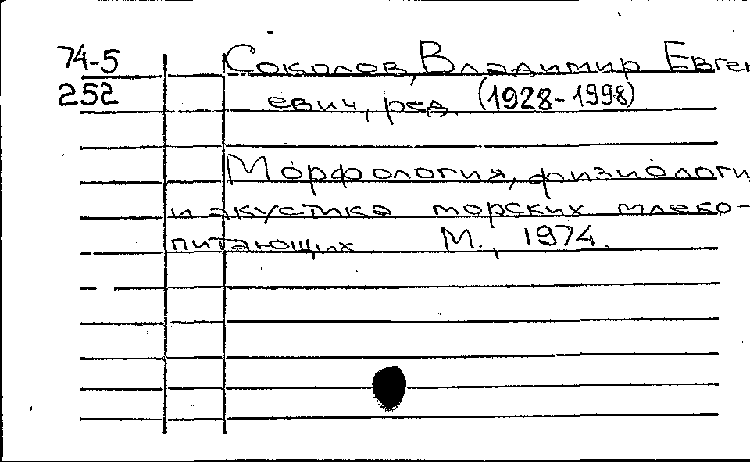 74-5 Соколов, Владимир Евген
252 евич, ред. (1928-1998)
Морфология, физиологи
и акустика морских млеко-
питающих М., 1974.